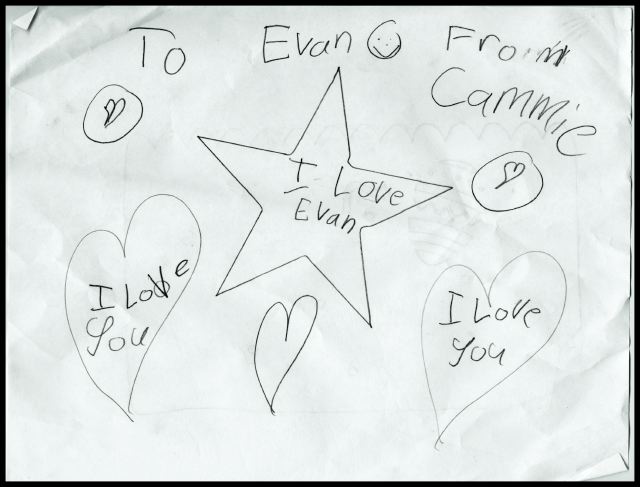 To Evan From
Cammie
I Love
Evan
I Love
You
I Love
You